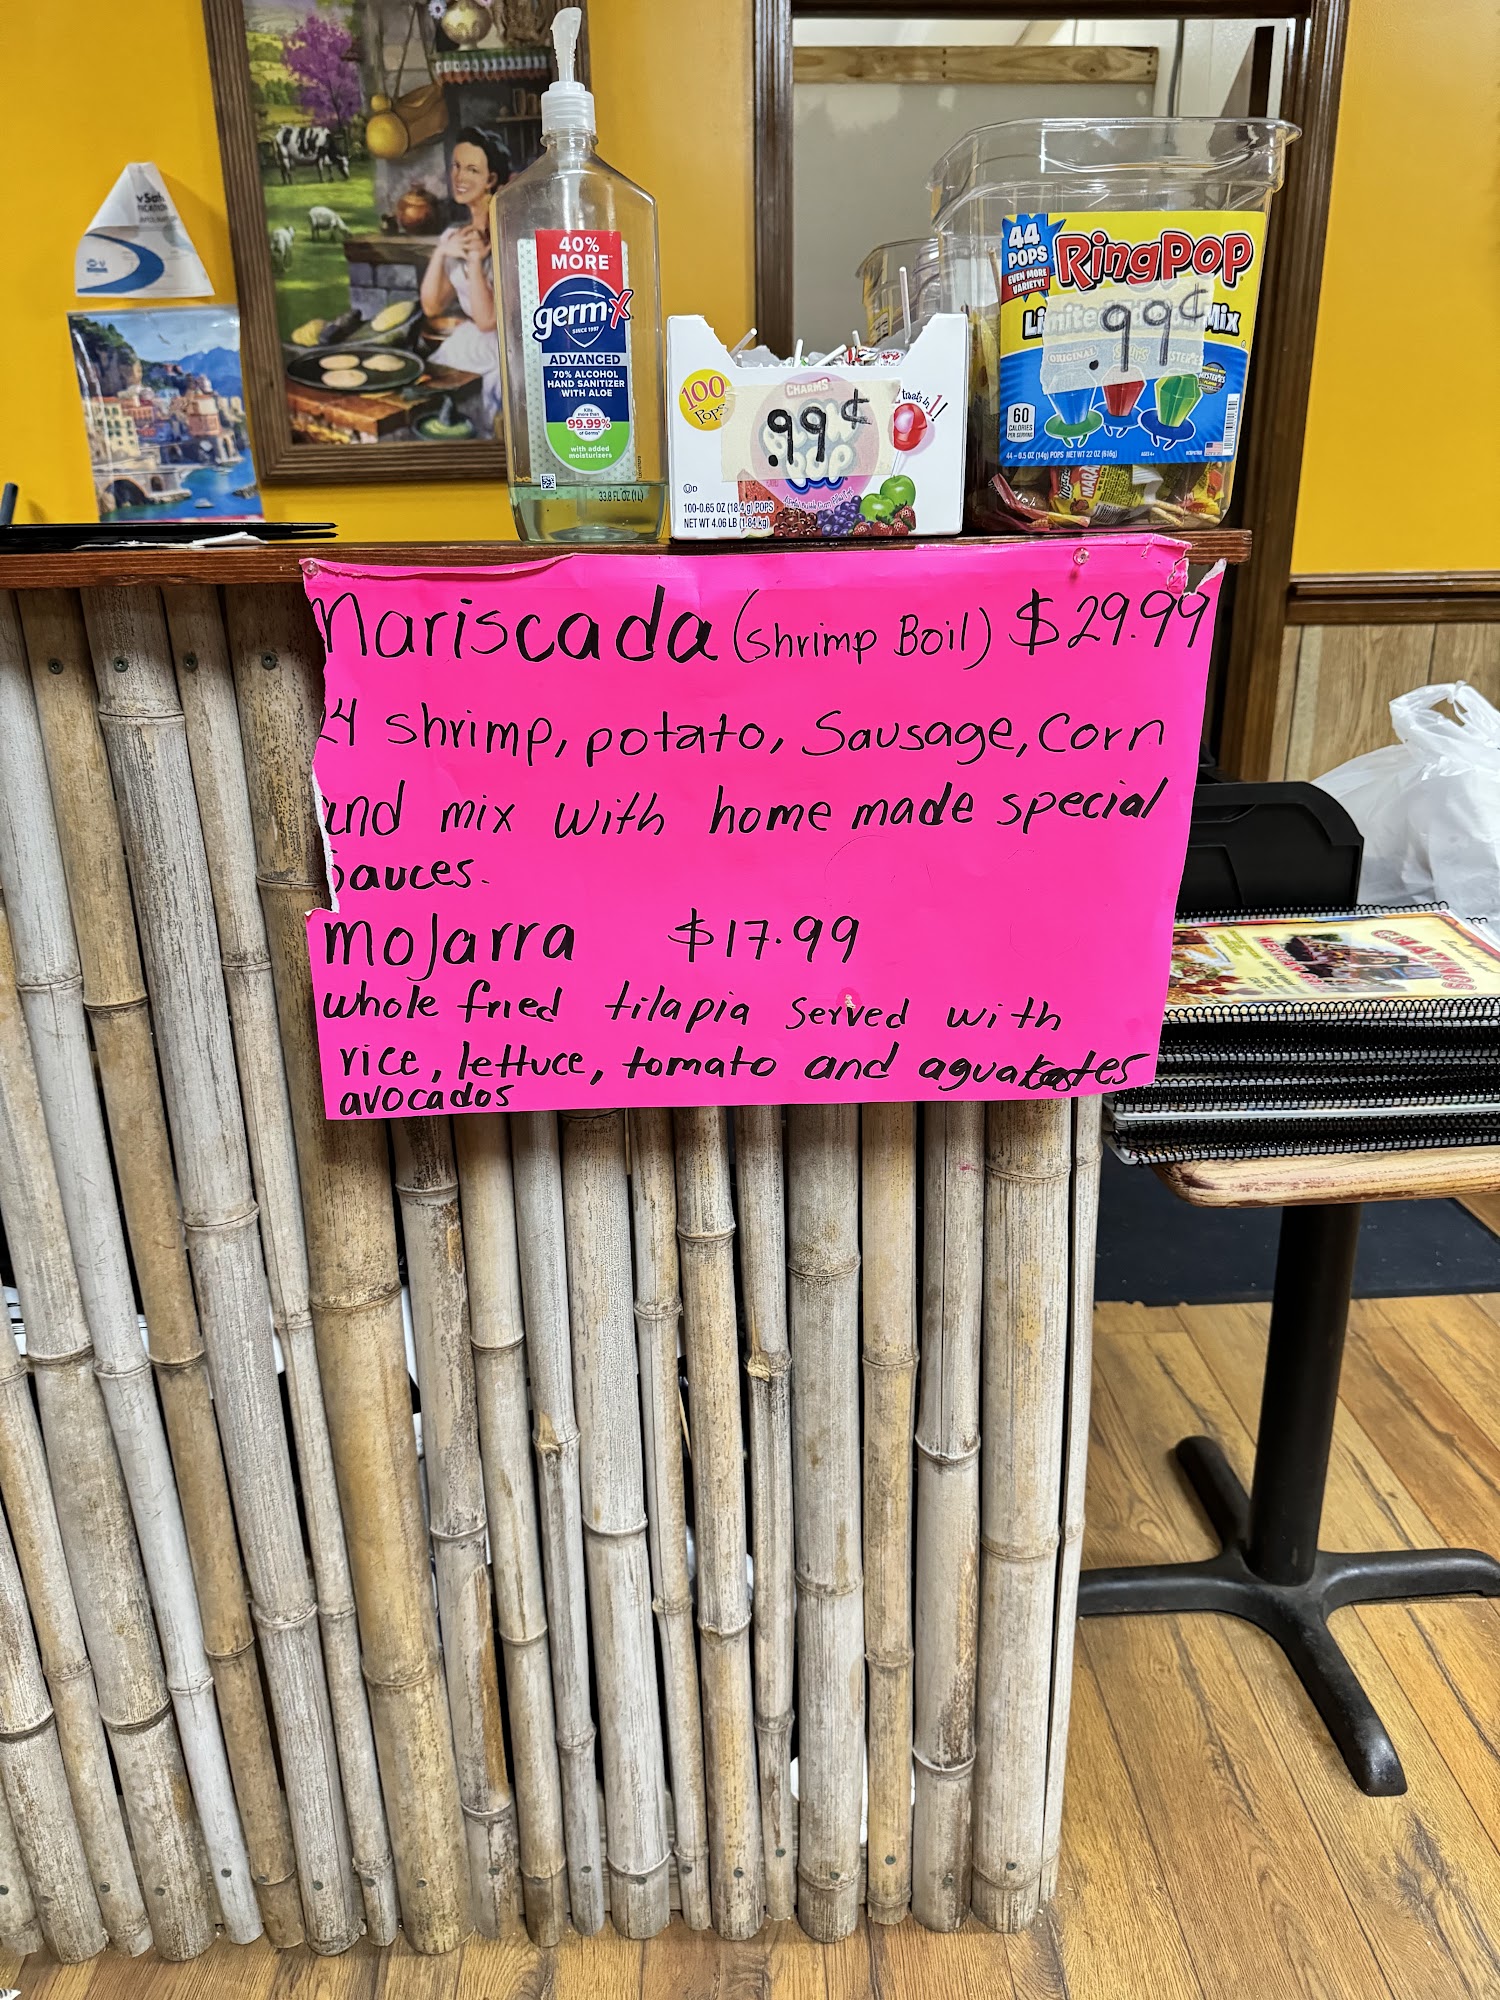 40%
MORE
germ-x
SINCE 1987
ADVANCED
70% ALCOHOL
HAND SANITIZER
WITH ALOE
Kills
more than
99.99%
of Germs*
with added
moisturizers
33.8 FL OZ (1L)
100
Pops
CHARMS
.99¢
treats in 1!
100-0.65 OZ (18.4 g) POPS
NET WT 4.06 LB (1.84 kg)
44
POPS
EVEN MORE
VARIETY!
RingPop
Mix
.99¢
ORIGINAL
60
CALORIES
PER SERVING
44 – 0.5 OZ (14g) POPS NET WT 22 OZ (616g)
Mariscada (shrimp Boil) $29.99
24 shrimp, potato, Sausage, Corn
and mix with home made special
Sauces.
Mojarra $17.99
whole fried tilapia served with
rice, lettuce, tomato and
avocados